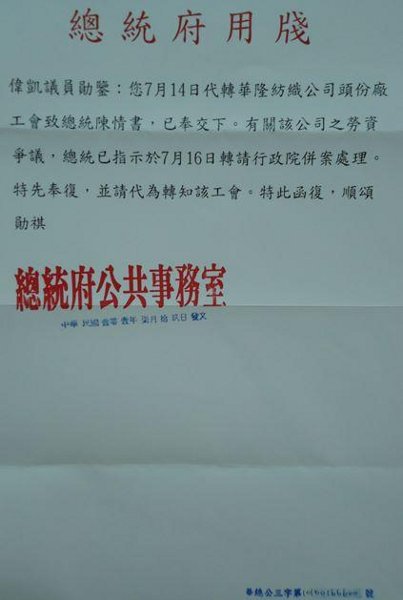 總統府用牋
偉凱議員勛鑒：您7月14日代轉華隆紡織公司頭份廠
工會致總統陳情書，已奉交下。有關該公司之勞資
爭議，總統已指示於7月16日轉請行政院併案處理。
特先奉復，並請代為轉知該工會。特此函復，順頌
勛祺
總統府公共事務室
中華民國壹零壹年柒月拾玖日發文
華總公三字第 號